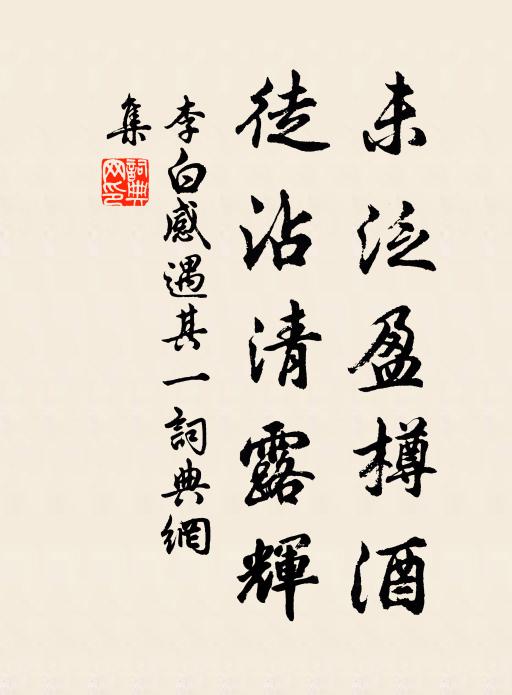 未泛盈樽酒
徒沾清露輝
李白感遇其一詞典網
集
詞典網印